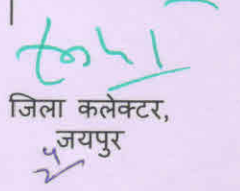 जिला कलेक्टर,
जयपुर